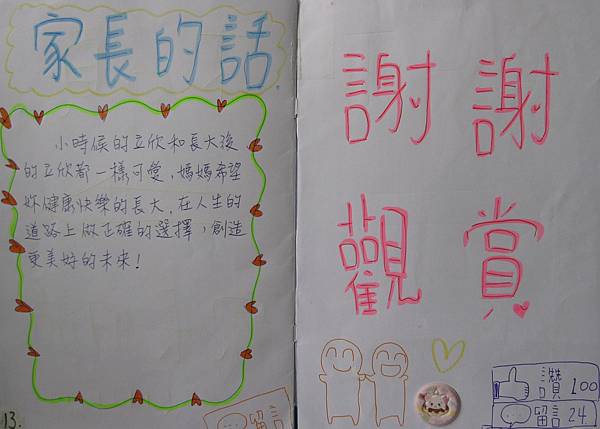 家長的話
小時候的立欣和長大後
的立欣都一樣可愛,媽媽希望
妳健康快樂的長大,在人生的
道路上做正確的選擇,創造
更美好的未來!
13.
留言
謝謝
觀賞
讚 100
留言 24